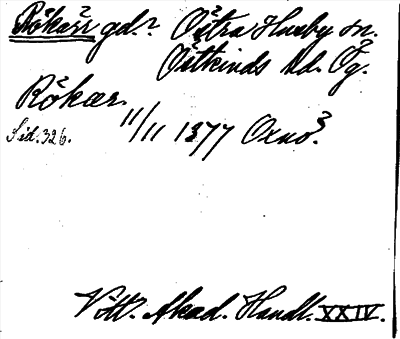 Rökärr gd.? Östra Husby sn.
Östkinds hd. Ög.
Rökær
Sid. 326. 11/11 1377 Oxno3.
Vitt. Akad. Handl. XXIV.